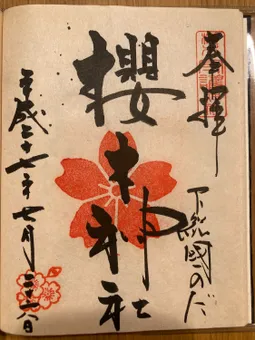 奉拝
下総國のだ
櫻木神社
平成二十七年七月